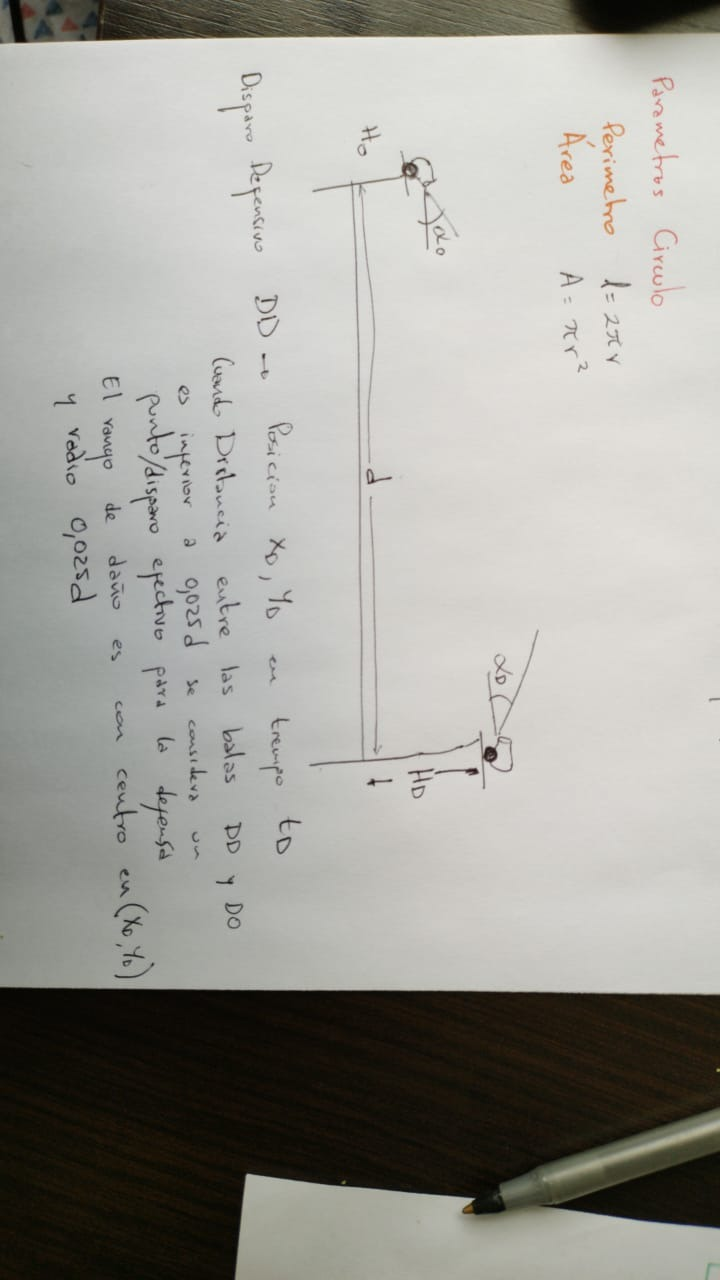 Parametros Circulo
Perimetro l = 2πr
Área A = πr²
αo
Ho
d
αD
HD
Disparo Defensivo DD → Posicion XD, YD en tiempo tD
Cuando Distancia entre las balas DD y DO
es inferior a 0,025d se considera un
punto/disparo efectivo para la defensa
El rango de daño es con centro en (XD, YD)
y radio 0,025d